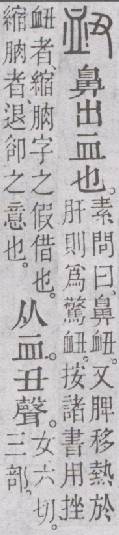 衄
鼻出血也。
素問曰、鼻衄。又脾移熱於
肝則爲驚衄。按諸書用挫
衄者、縮朒字之假借也。
縮朒者、退卻之意也。
从血。丑聲。
女六切。
三部。